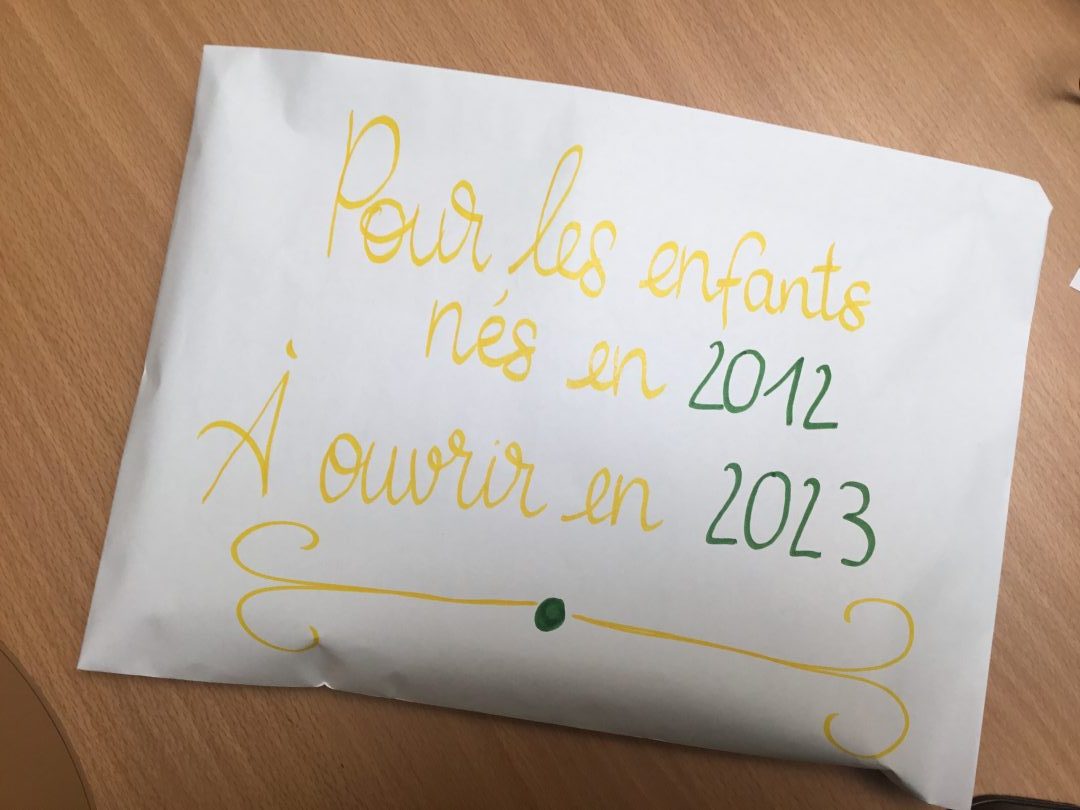 Pour les enfants
nés en 2012
À ouvrir en 2023